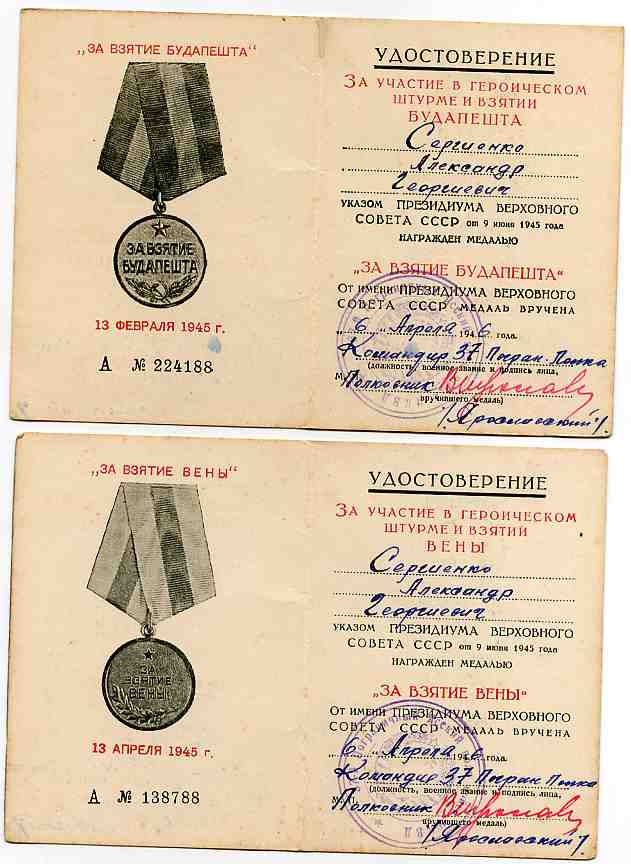 „ЗА ВЗЯТИЕ БУДАПЕШТА“
ЗА ВЗЯТИЕ
БУДАПЕШТА
13 ФЕВРАЛЯ 1945 г.
А № 224188
УДОСТОВЕРЕНИЕ
ЗА УЧАСТИЕ В ГЕРОИЧЕСКОМ
ШТУРМЕ И ВЗЯТИИ
БУДАПЕШТА
Сергиенко
Александр
Георгиевич
УКАЗОМ ПРЕЗИДИУМА ВЕРХОВНОГО
СОВЕТА СССР от 9 июня 1945 года
НАГРАЖДЕН МЕДАЛЬЮ
„ЗА ВЗЯТИЕ БУДАПЕШТА“
От имени ПРЕЗИДИУМА ВЕРХОВНОГО
СОВЕТА СССР МЕДАЛЬ ВРУЧЕНА
„6 „ Апреля 1946 года.
Командир 37 Погран. Полка
(должность, военное звание и подпись лица,
Полковник
вручившего медаль)
/Ярославский/
„ЗА ВЗЯТИЕ ВЕНЫ“
ЗА
ВЗЯТИЕ
ВЕНЫ
13 АПРЕЛЯ 1945 г.
А № 138788
УДОСТОВЕРЕНИЕ
ЗА УЧАСТИЕ В ГЕРОИЧЕСКОМ
ШТУРМЕ И ВЗЯТИИ
ВЕНЫ
Сергиенко
Александр
Георгиевич
УКАЗОМ ПРЕЗИДИУМА ВЕРХОВНОГО
СОВЕТА СССР от 9 июня 1945 года
НАГРАЖДЕН МЕДАЛЬЮ
„ЗА ВЗЯТИЕ ВЕНЫ“
От имени ПРЕЗИДИУМА ВЕРХОВНОГО
СОВЕТА СССР МЕДАЛЬ ВРУЧЕНА
„6 „ Апреля 1946 года.
Командир 37 Погран Полка
(должность, военное звание и подпись лица,
Полковник
вручившего медаль)
/Ярославский/